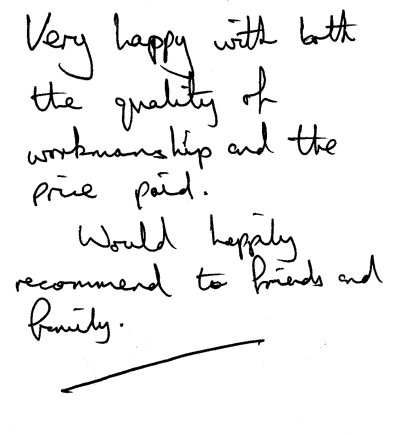 Very happy with both
the quality of
workmanship and the
price paid.
Would happily
recommend to friends and
family.